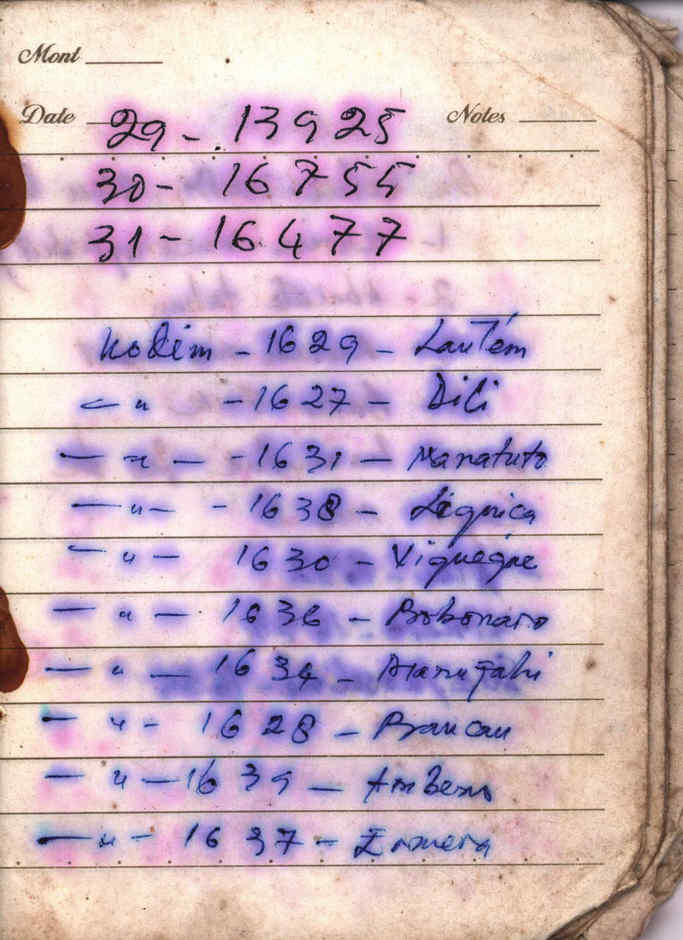 Mont
Date 29 - 13925 Notes
30 - 16755
31 - 16.477
Kodim - 1629 - Lautém
— " - 1627 - Dili
— " — - 1631 — Manatuto
— " - - 1638 - Liquica
— " — 1630 - Viqueque
— " — 1636 - Bobonaro
— " — 1634 -
— " - 1628 - Baucau
— " — 1639 — Ambeno
— " - 1637 - Ermera